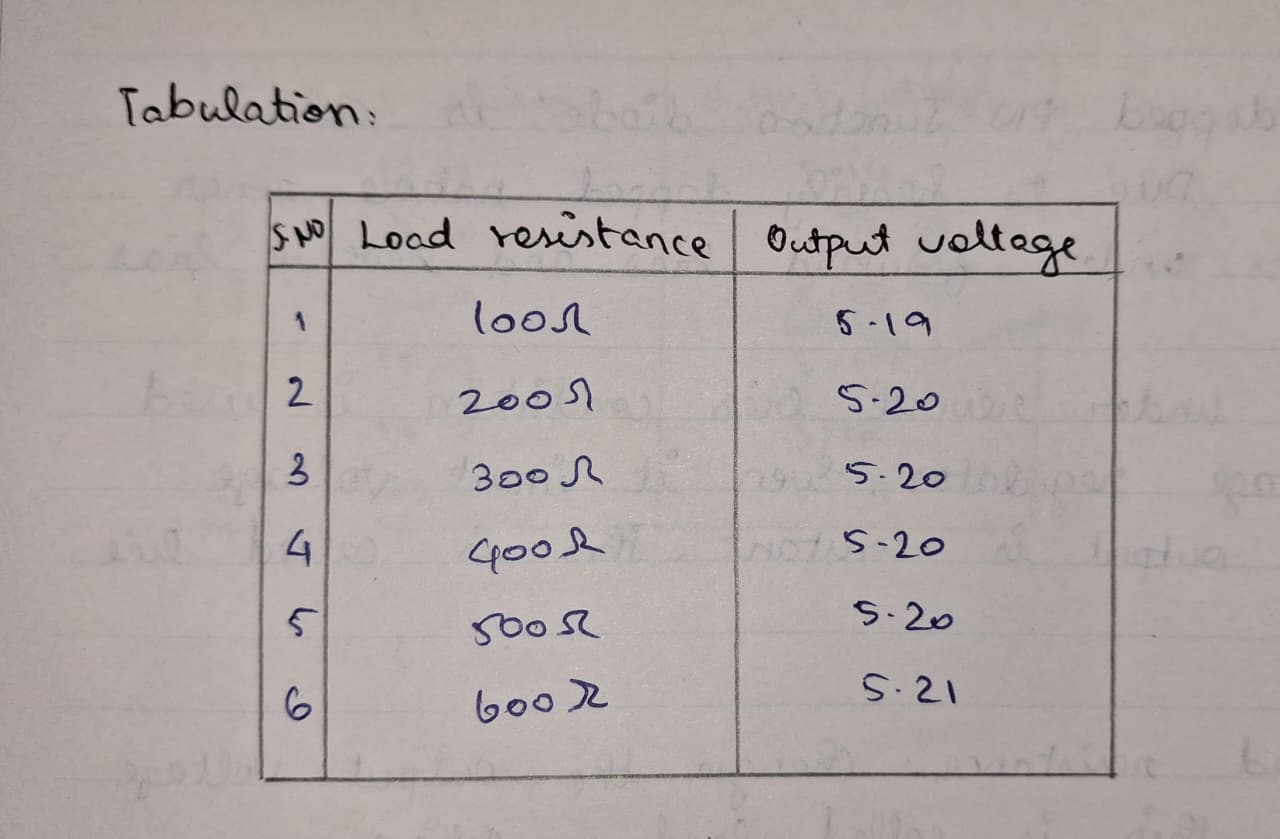 Tabulation:
S.NO Load resistance Output voltage
1 100Ω 5.19
2 200Ω 5.20
3 300Ω 5.20
4 400Ω 5.20
5 500Ω 5.20
6 600Ω 5.21